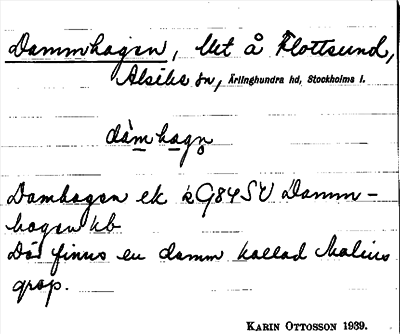 Dammhagen, Utt å Flottsund,
Alsike sn, Ärlinghundra hd, Stockholms l.
dàmhagn̥
Damhagen ek kG84SV Damm-
hagen kb
Där finns en damm kallad Malins
grop.
KARIN OTTOSSON 1939.